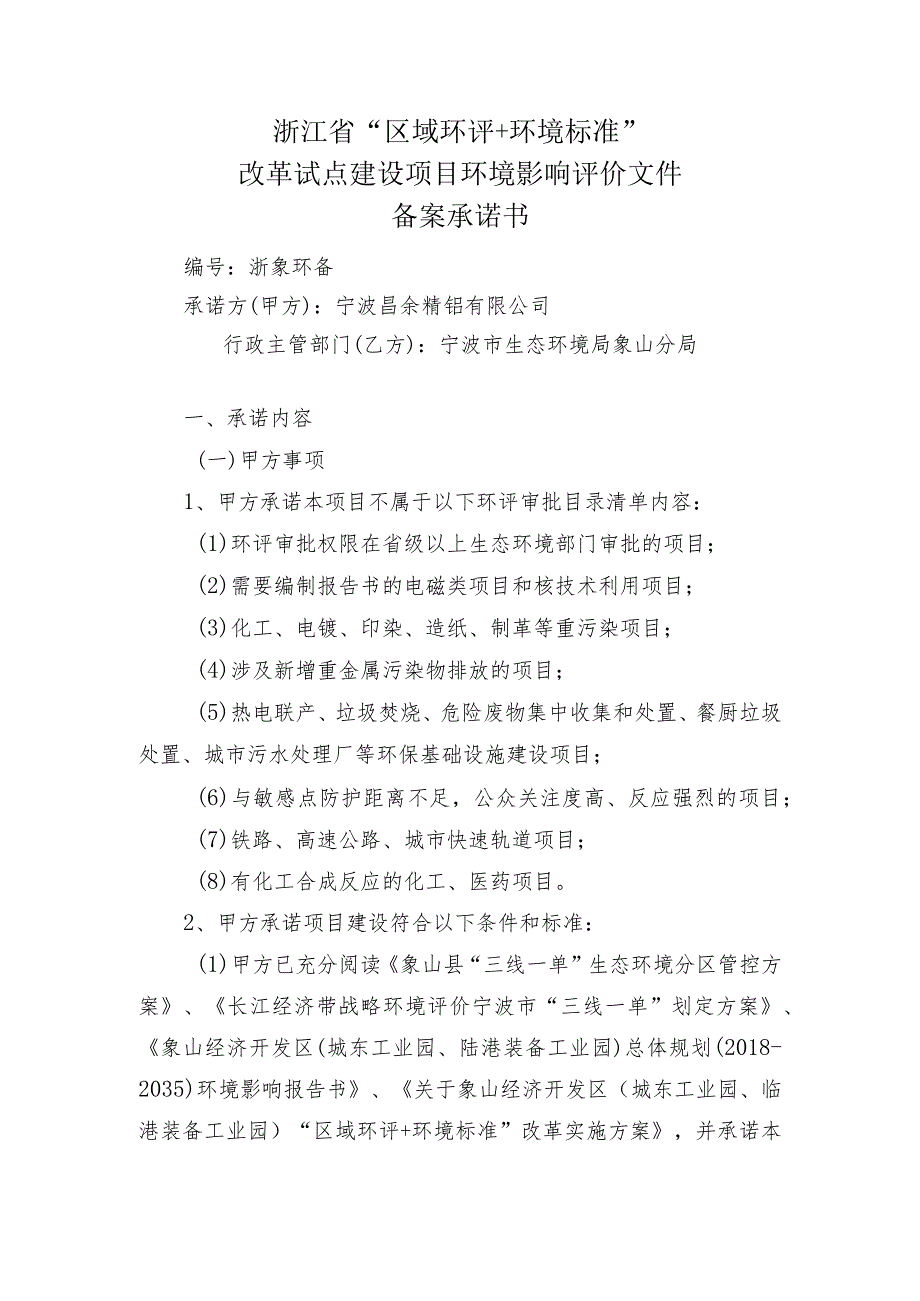 浙江省“区域环评+环境标准”
改革试点建设项目环境影响评价文件
备案承诺书
编号：浙象环备
承诺方(甲方)：宁波昌余精铝有限公司
行政主管部门(乙方)：宁波市生态环境局象山分局
一、承诺内容
(一)甲方事项
1、甲方承诺本项目不属于以下环评审批目录清单内容：
(1)环评审批权限在省级以上生态环境部门审批的项目；
(2)需要编制报告书的电磁类项目和核技术利用项目；
(3)化工、电镀、印染、造纸、制革等重污染项目；
(4)涉及新增重金属污染物排放的项目；
(5)热电联产、垃圾焚烧、危险废物集中收集和处置、餐厨垃圾
处置、城市污水处理厂等环保基础设施建设项目；
(6)与敏感点防护距离不足，公众关注度高、反应强烈的项目；
(7)铁路、高速公路、城市快速轨道项目；
(8)有化工合成反应的化工、医药项目。
2、甲方承诺项目建设符合以下条件和标准：
(1)甲方已充分阅读《象山县“三线一单”生态环境分区管控方
案》、《长江经济带战略环境评价宁波市“三线一单”划定方案》、
《象山经济开发区(城东工业园、陆港装备工业园)总体规划(2018-
2035)环境影响报告书》、《关于象山经济开发区（城东工业园、临
港装备工业园）“区域环评+环境标准”改革实施方案》，并承诺本